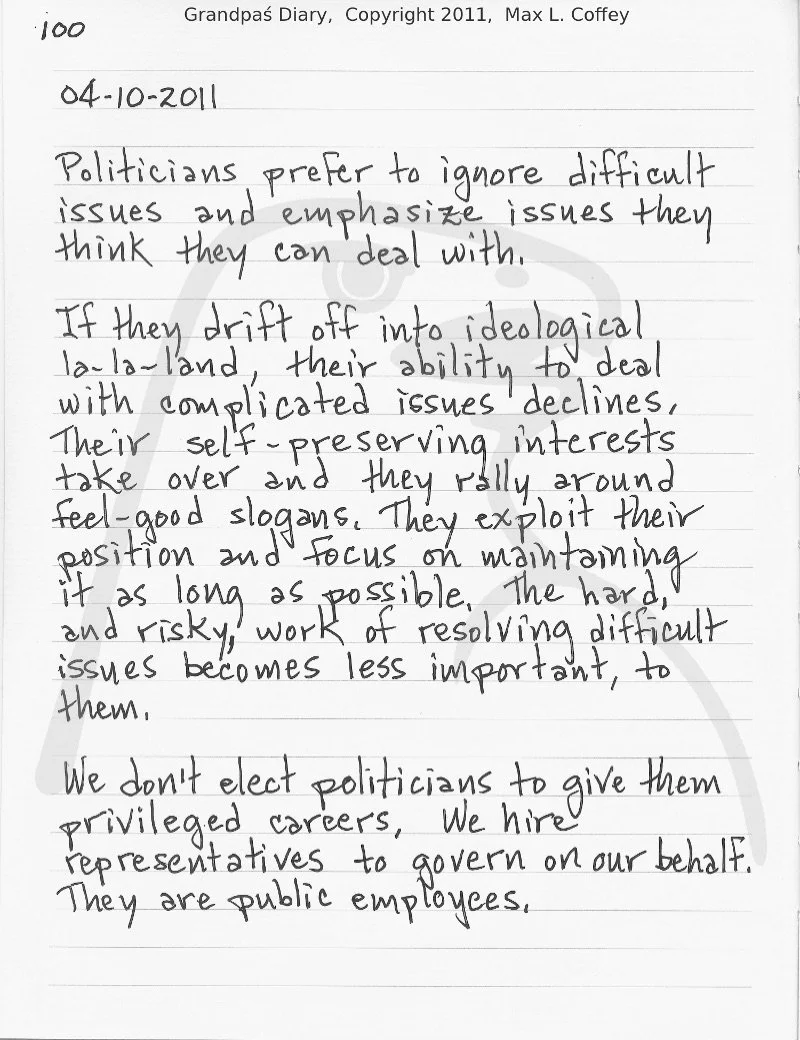 Grandpaś Diary, Copyright 2011, Max L. Coffey
100
04-10-2011
Politicians prefer to ignore difficult
issues and emphasize issues they
think they can deal with.
If they drift off into ideological
la-la-land, their ability to deal
with complicated issues declines.
Their self-preserving interests
take over and they rally around
feel-good slogans. They exploit their
position and focus on maintaining
it as long as possible. The hard,
and risky, work of resolving difficult
issues becomes less important, to
them.
We don't elect politicians to give them
privileged careers, We hire
representatives to govern on our behalf.
They are public employees.